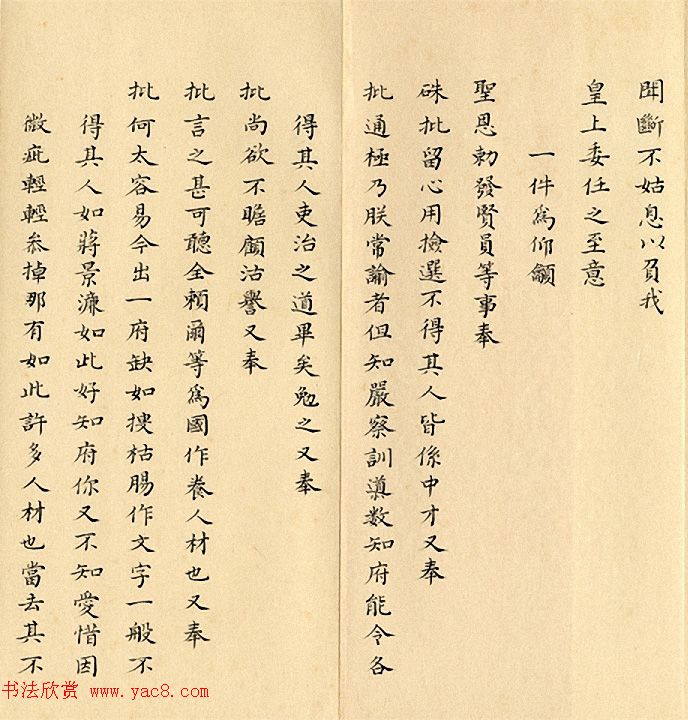 開斷不姑息以負我
皇上委任之至意
一件爲仰籲
聖恩勅發賢員等事奉
硃批留心用撿選不得其人皆係中才又奉
批通極乃朕常諭者但知嚴察訓導数知府能令各
得其人吏治之道畢矣勉之又奉
批尚欲不瞻顧沽譽又奉
批言之甚可聽全賴爾等爲國作養人材也又奉
批何太容易今出一府缺如搜枯腸作文字一般不
得其人如蔣景濂如此好知府你又不知愛惜因
微疵輕輕叅掉那有如此許多人材也當去其不
书法欣赏 www.yac8.com